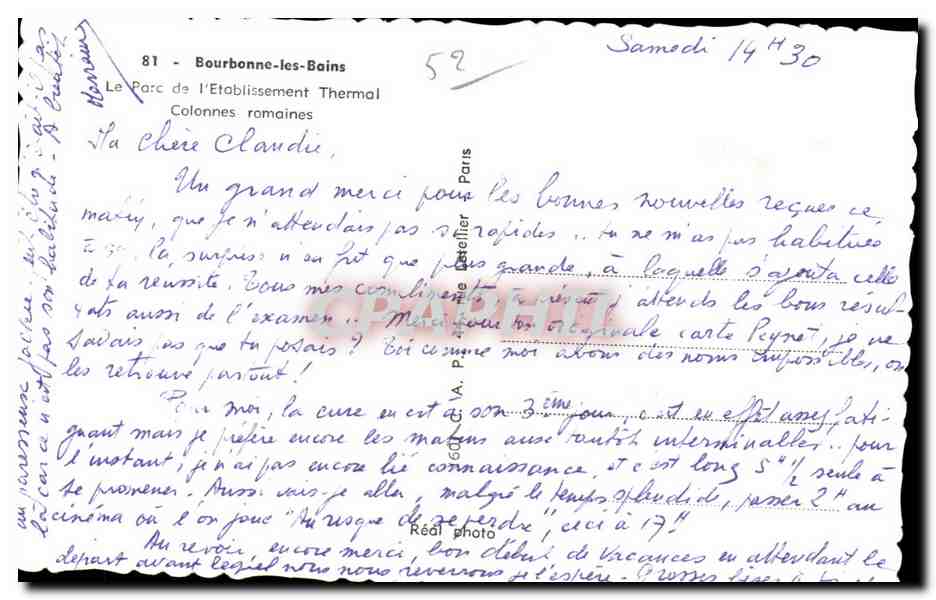 Samedi 14H30
52
81 - Bourbonne-les-Bains
Le Parc de l'Etablissement Thermal
Colonnes romaines
Ma chère Claudie,
Un grand merci pour les bonnes nouvelles reçues ce
matin, que je n'attendais pas si rapides .. tu ne m'as pas habituée
la surprise n'en fut que plus grande, à laquelle s'ajouta celle
de ta réussite. Tous mes compliments à présent j'attends les bons résul-
tats aussi de l'examen .. Merci pour ton originale carte Peynet, je ne
savais pas que tu posais ? Toi comme moi avons des noms impossibles, on
les retrouve partout !
Pour moi, la cure en est à son 3ème jour, c'est en effet assez fati-
guant mais je préfère encore les matins aux tantôts interminables .. pour
l'instant, je n'ai pas encore lié connaissance, et c'est long 5H1/2 seule à
se promener. Aussi vais-je aller, malgré le temps splendide, passer 2H au
cinéma où l'on joue "Au risque de se perdre", ceci à 17H
Au revoir, encore merci, bon début de vacances en attendant le
départ avant lequel nous nous reverrons je l'espère. Grosses bises
un paresseuse Jacline, qu'a-t-il pas
là car ce n'est pas son habitude - A bientôt
Réal photo
CPAPHIL